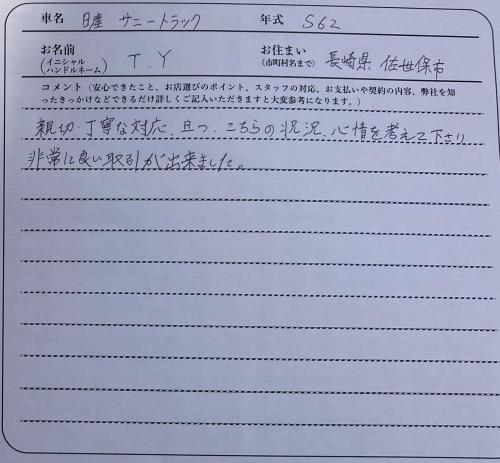 車名 日産 サニートラック 年式 S62
お名前 (イニシャル ハンドルネーム) T.Y お住まい (市町村名まで) 長崎県 佐世保市
コメント (安心できたこと、お店選びのポイント、スタッフの対応、お支払いや契約の内容、弊社を知
ったきっかけなどできるだけ詳しくご記入いただきますと大変参考になります。)
親切・丁寧な対応、且つ、こちらの状況、心情を考えて下さり
非常に良い取引が出来ました。